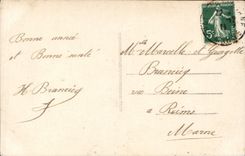 Bonne année
et Bonne santé
H Brancicq
Mlle Marcelle et Georgette
Brancicq
via Beine
a Reims
Marne